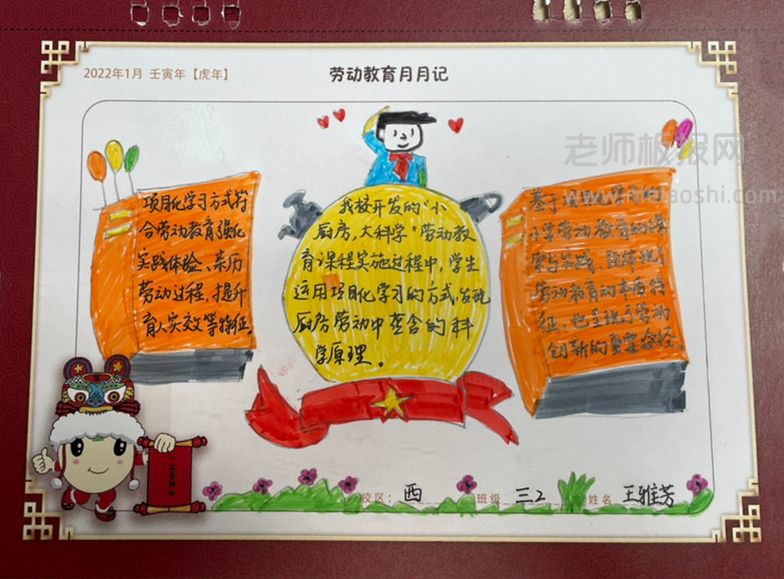 2022年1月 壬寅年【虎年】
劳动教育月月记
老师板报网
项目化学习方式符
合劳动教育强化
实践体验、亲历
劳动过程，提升
育人实效等特征，
我校开发的“小
厨房，大科学”劳动教
育课程实施过程中，学生
运用项目化学习的方式，发现
厨房劳动中蕴含的科
学原理。
基于项目化学习的
小学劳动教育的探
索与实践，既体现了
劳动教育的本质特
征，也呈现了劳动
创新的重要途径。
校区：西
班级 三2
姓名 王雅芳